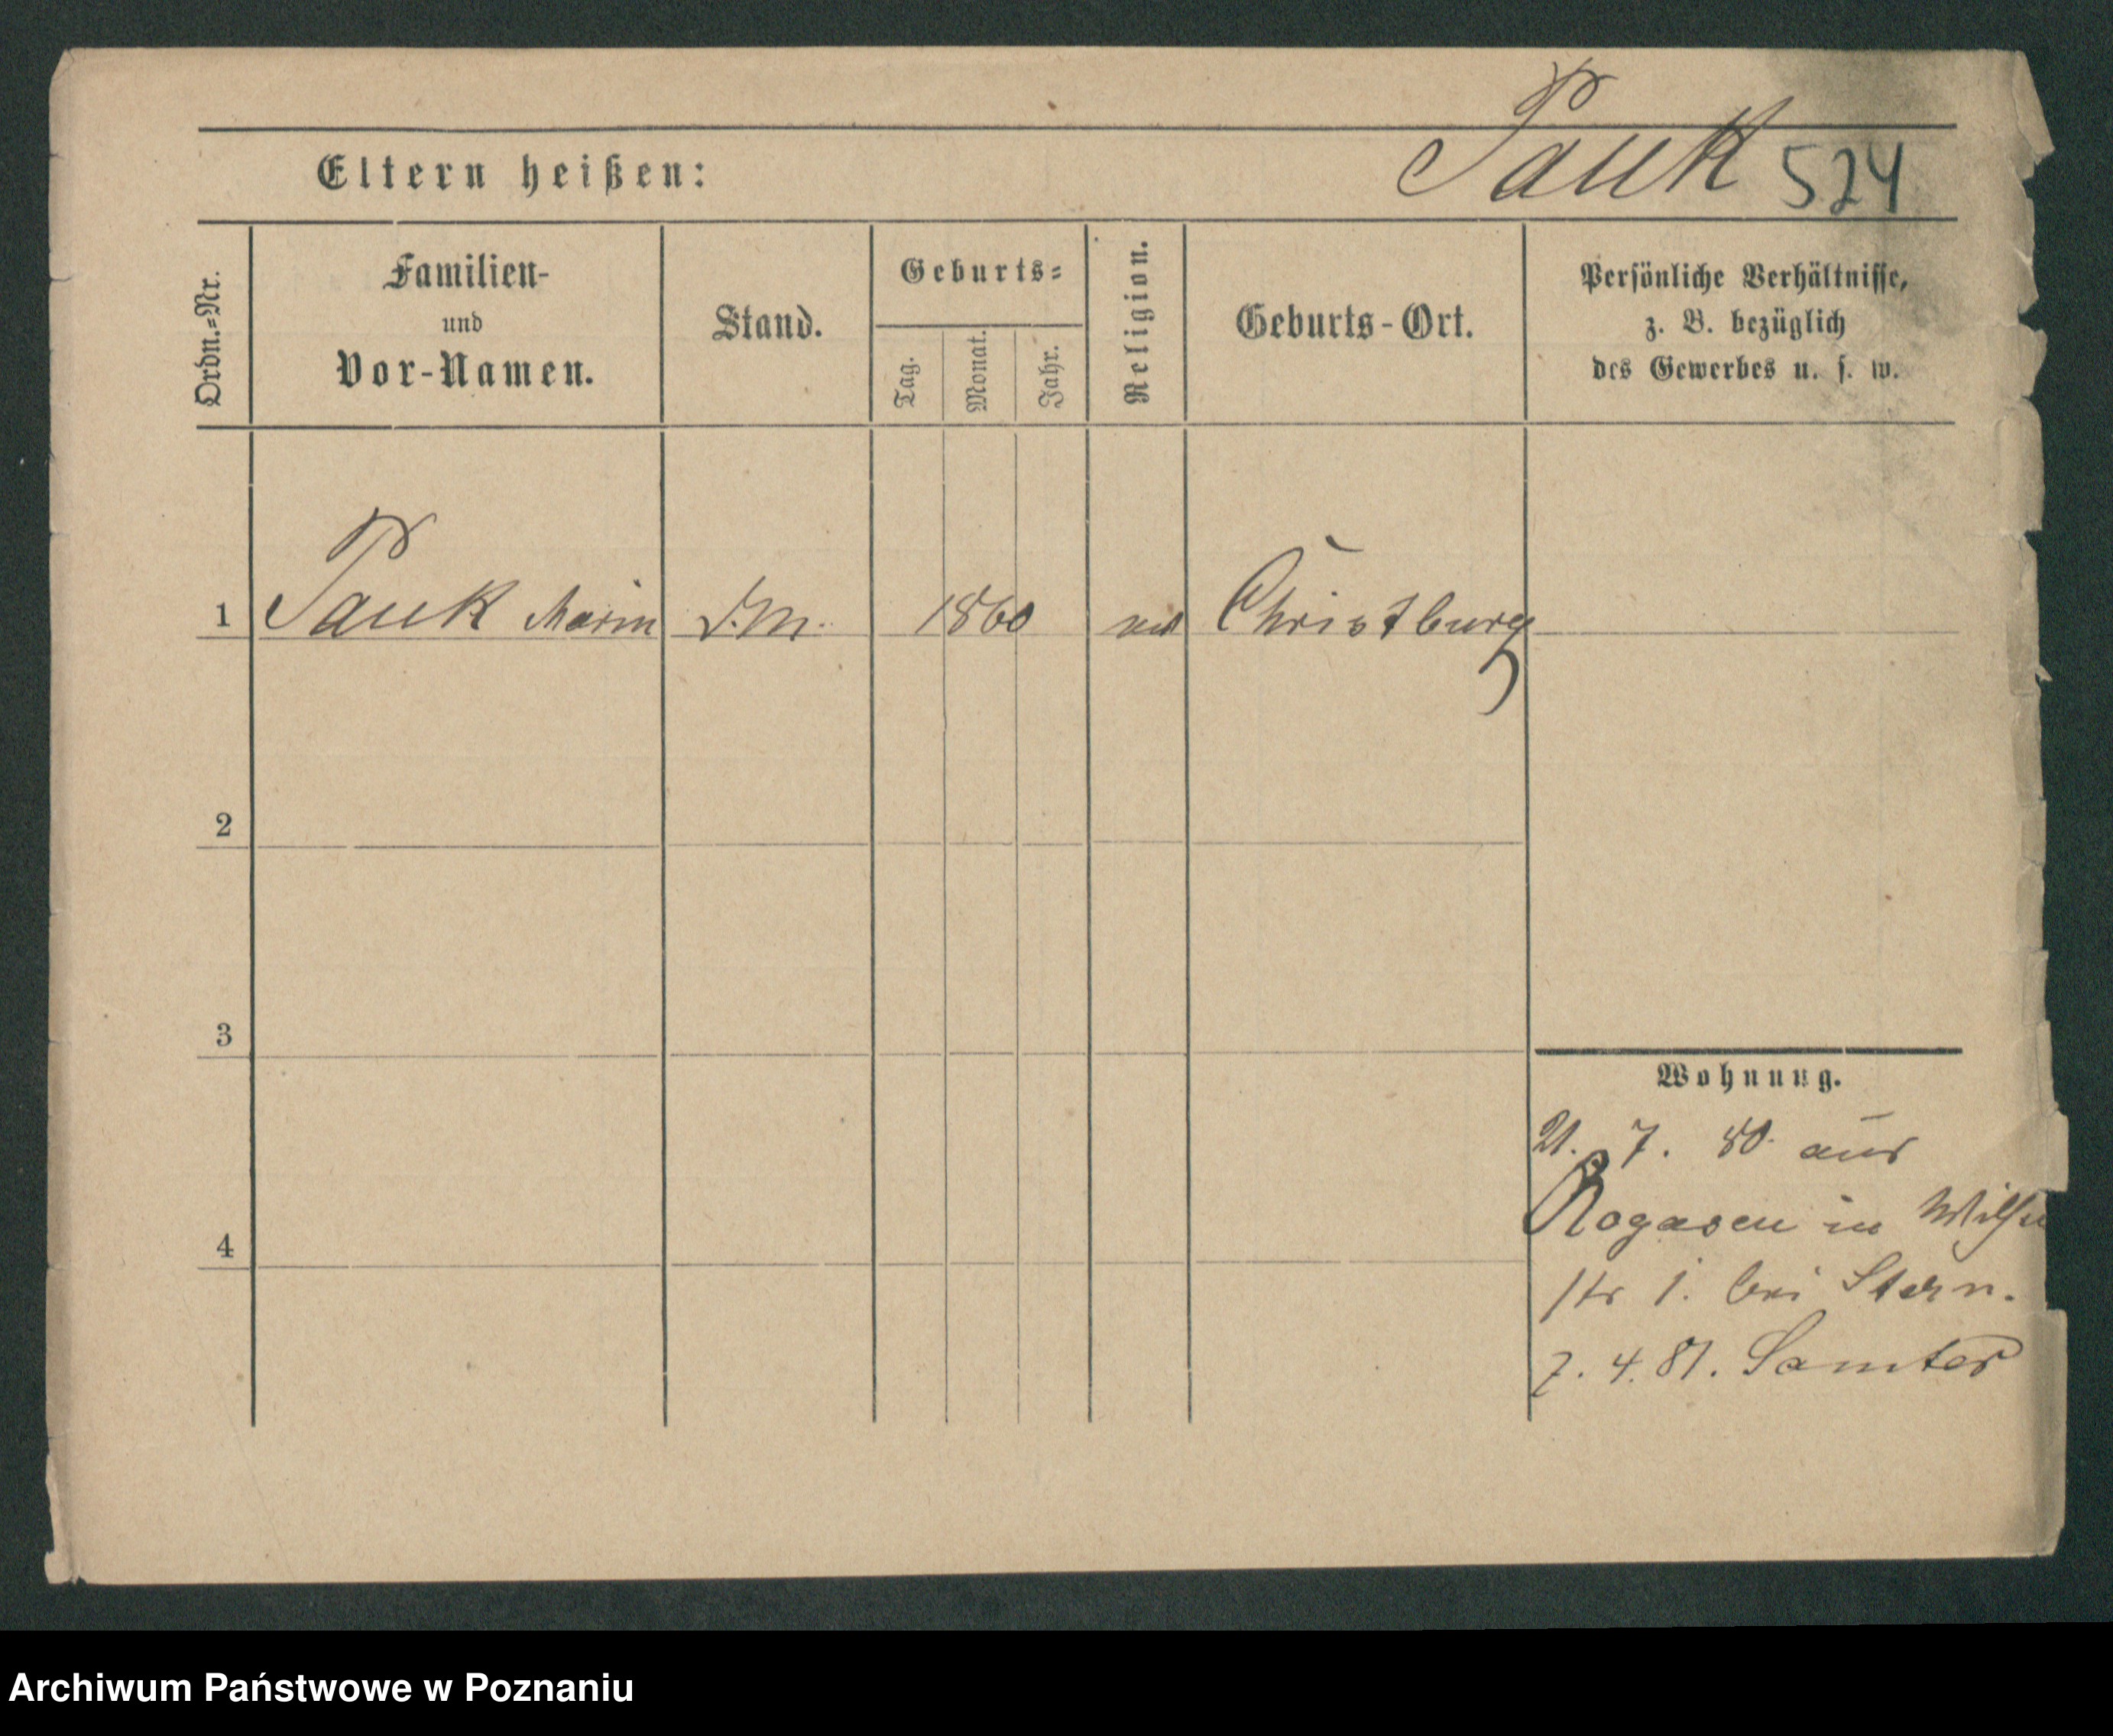 Pauk 524
Eltern heißen:
Ordn.=Nr.
Familien-
und
Vor-Namen.
Stand.
Geburts=
Tag.
Monat.
Jahr.
Religion.
Geburts-Ort.
Persönliche Verhältnisse,
z. B. bezüglich
des Gewerbes u. s. w.
1 Pauk D.M. 1860 Christburg
2
3
4
Wohnung.
21. 7. 80. aus
Rogasen in
str 1. bei Stern.
7. 4. 81. Samter
Archiwum Państwowe w Poznaniu